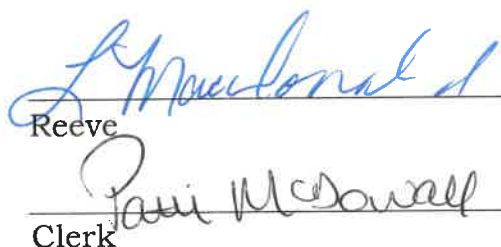 L MacDonald
Reeve
Patti McDowall
Clerk